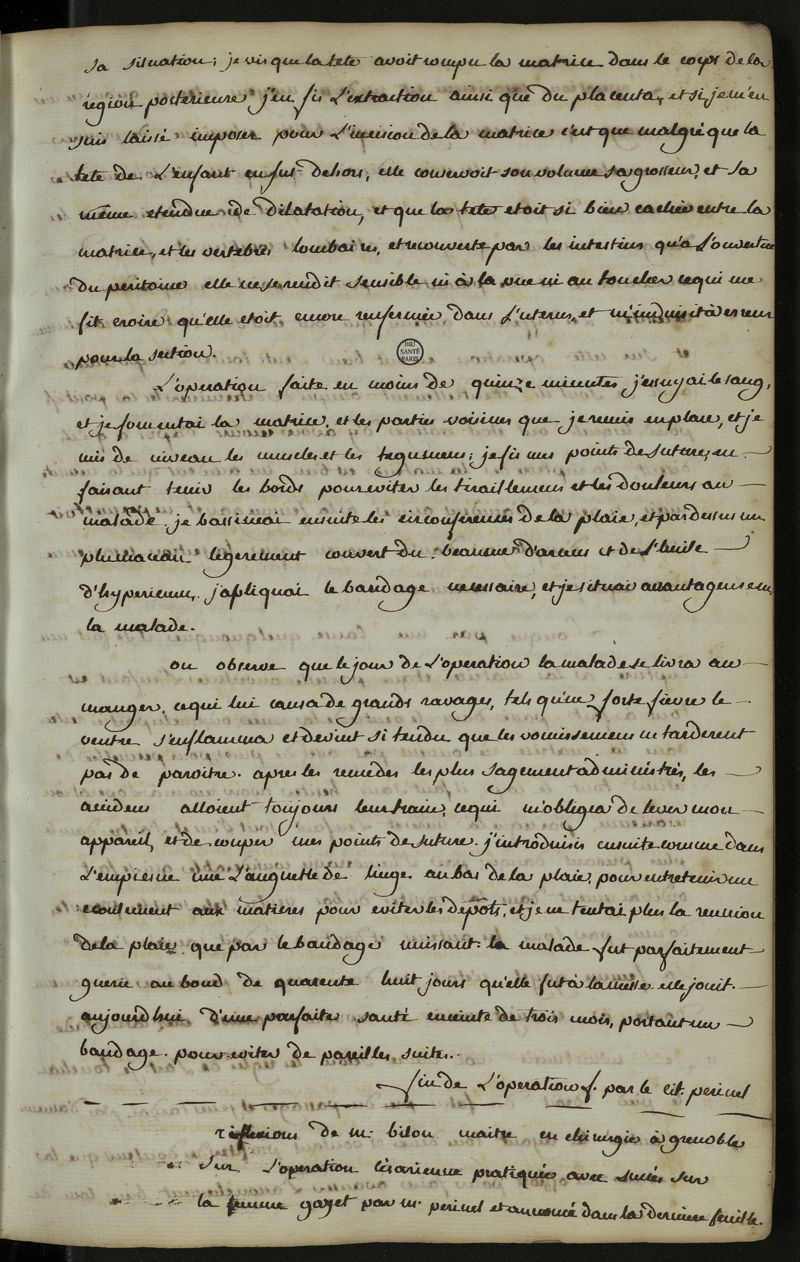 sa situation; je vis que la tete avoit rompu la matrice dans le corps de la
région posterieure j'en fis L'extraction ainsi que du placenta, et si je m'en
suis laissé imposer pour L'incision de la matrice c'est que malgré que la
tete de L'enfant en fut dehors, elle conservoit son volume sa grosseur, et sa
même etendue de dilatation, et que la tete etoit si bien cachée entre la
matrice, et les vertebres lombaires, et recouverte par les intestins qu'a L'ouverture
du peritoine elle ne se rendit sensible ni à la vue ni au toucher ce qui me
fit croire qu'elle etoit encore renfermée dans L'uterus, et m'induisit à erreur
pour la section.
BIU
SANTÉ
PARIS
L'operation faite en moins de quinze minutes j'essuyai le sang,
et je fomentai la matrice, et les parties voisines que je remis en place, et je
mis de niveau les muscles et les tegumens; je fis mes points de suture, en
faisant tenir les bords pour eviter les tiraillemens et les douleurs au
malade. je bassinai ensuite les circonferences de la plaie, et par dessus un
plumaceau legerement couvert du beaume d'arceus et de L'huile
d'hypericum, j'apliquai le bandage necessaire, et je situai avantageusement
la malade.
on observe que le jour de L'operation la malade se livra au
manger, ce qui lui causa de grands ravages, tels qu'une forte fievre le
ventre s'enflamma et devint si tendu que les vomissemens ne tarderent
pas de paroitre. apres les remedes les plus sagement administrés, les
accidens alloient toujours leur train, ce qui m'obligea de lever mon
appareil, et de couper mes points de suture. j'introduisis ensuite comme dans
L'empieme une Languette de linge au bas de la plaie, pour entretenir un
ecoulement aux matieres pour eviter les dépôts, et je ne tentai plus la reunion
de la plaie que par le bandage unissant. la malade fut parfaitement
guerie au boud de quarente huit jours qu'elle fut à la messe. elle jouit
aujourd'hui d'une parfaite santé enceinte de trois mois, portant un
bandage pour eviter de pareilles suites.
fin de L'operation f. par le cit. perinel
réflexions de m. bilon maitre en chirurgie à grenoble
sur L'operation césarienne pratiquée avec succès sur
la femme gayet par m. perinel et annoncé dans la derniere feuille.